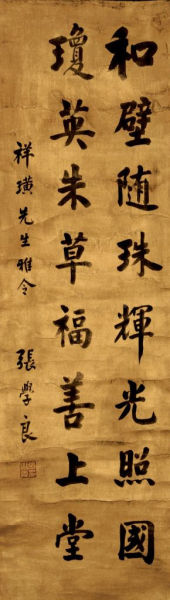 和璧随珠輝光照國
瓊英朱草福善上堂
祥璜先生雅令
張學良